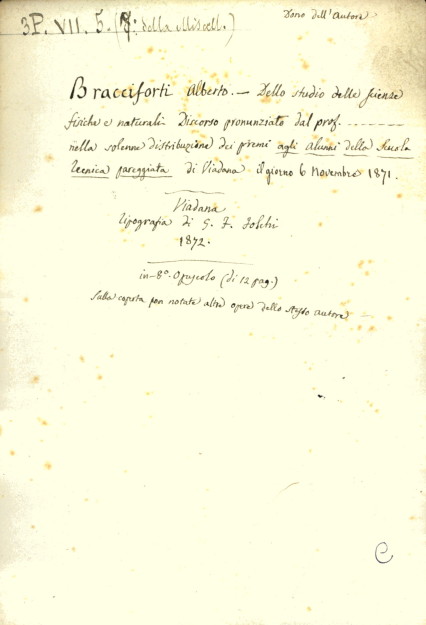 3P. VII. 5. (7: della Miscell.)
Dono dell'Autore
Bracciforti Alberto. — Dello studio delle scienze
fisiche e naturali. Discorso pronunziato dal prof. --------
nella solenne distribuzione dei premi agli alunni della Scuola
tecnica pareggiata di Viadana il giorno 6 Novembre 1871.
Viadana
Tipografia di G. F.
1872.
in-8º. Opuscolo (di 12 pag.)
Sulla coperta son notate altre opere dello stesso autore
C